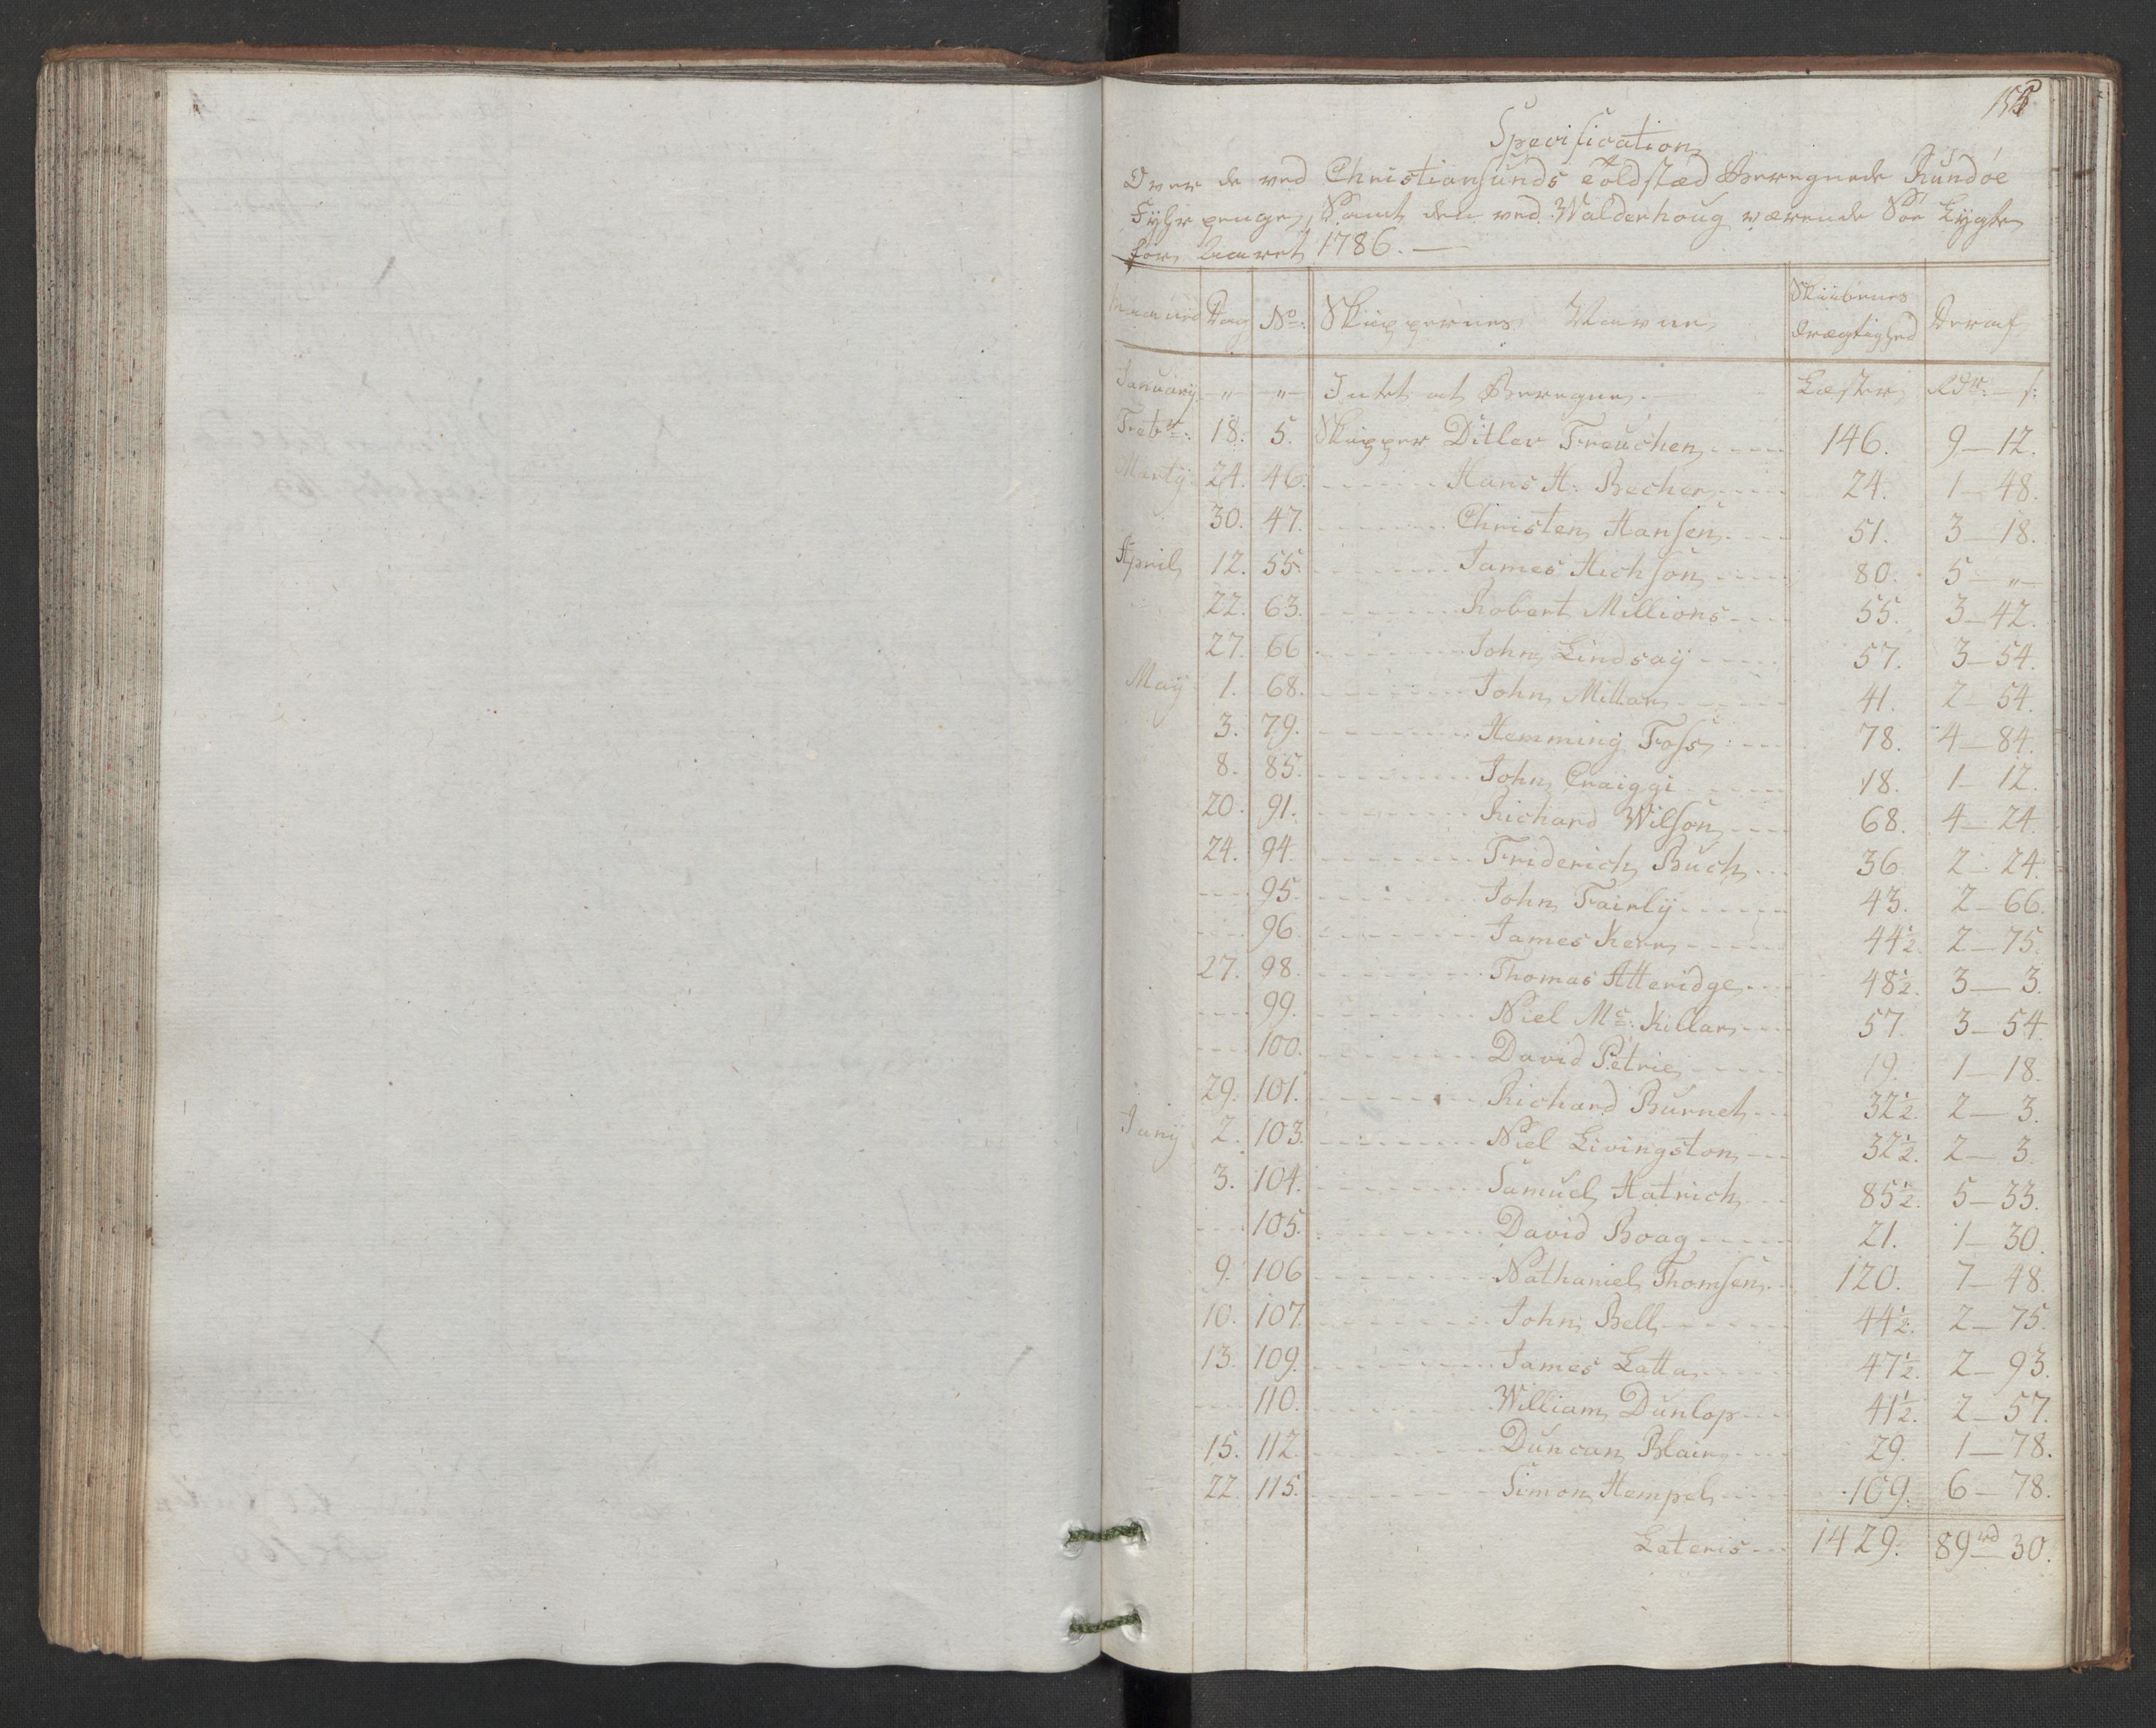 Specification
Over de ved Christiansunds Toldstæd Beregnede Rundøe
Fyhr penge, Samt den ved Walderhoug værende Søe Lygte
for Aaret 1786. —
Maaned Dag No: Skippernes Navne Skibenes Drægtighed Deraf
January — „ — „ — Intet at Beregne. Læster Rdr: — s:
Febr: 18. 5. Skipper Ditlev Freuchen 146. 9 — 12.
Martij 24. 46. Hans H: Becher 24. 1 — 48.
30. 47. Christen Hansen 51. 3 — 18.
April 12. 55. James Hichson 80. 5 — „ —
22. 63. Robert Millions 55. 3 — 42.
27. 66 John Lindsay 57. 3 — 54.
May 1. 68. John Millar 41. 2 — 54.
3. 79. Hemming Foss 78. 4 — 84.
8. 85. John Craiggi 18. 1 — 12.
20. 91. Richard Wilson 68. 4 — 24.
24. 94. Friderich Buch 36. 2 — 24.
---- 95. John Fairly 43. 2 — 66.
---- 96. James Kerr 44½. 2 — 75.
27. 98. Thomas Atteridge 48½. 3 — 3.
---- 99. Niel Mc: Killar 57. 3 — 54.
---- 100. David Petrie 19. 1 — 18.
29. 101. Richard Burnet 32½. 2 — 3.
Juny 2. 103. Niel Livingston 32½. 2 — 3.
3. 104. Samuel Hatrich 85½. 5 — 33.
---- 105. David Boag 21. 1 — 30.
9. 106 Nathaniel Thomsen 120. 7 — 48.
10. 107. John Bell 44½. 2 — 75.
13. 109. James Latta 47½. 2 — 93.
---- 110. William Dunlop 41½. 2 — 57.
15. 112. Duncan Blair 29. 1 — 78.
22. 115. Simon Hempel 109. 6 — 78.
Lateris 1429. 89 rd 30.